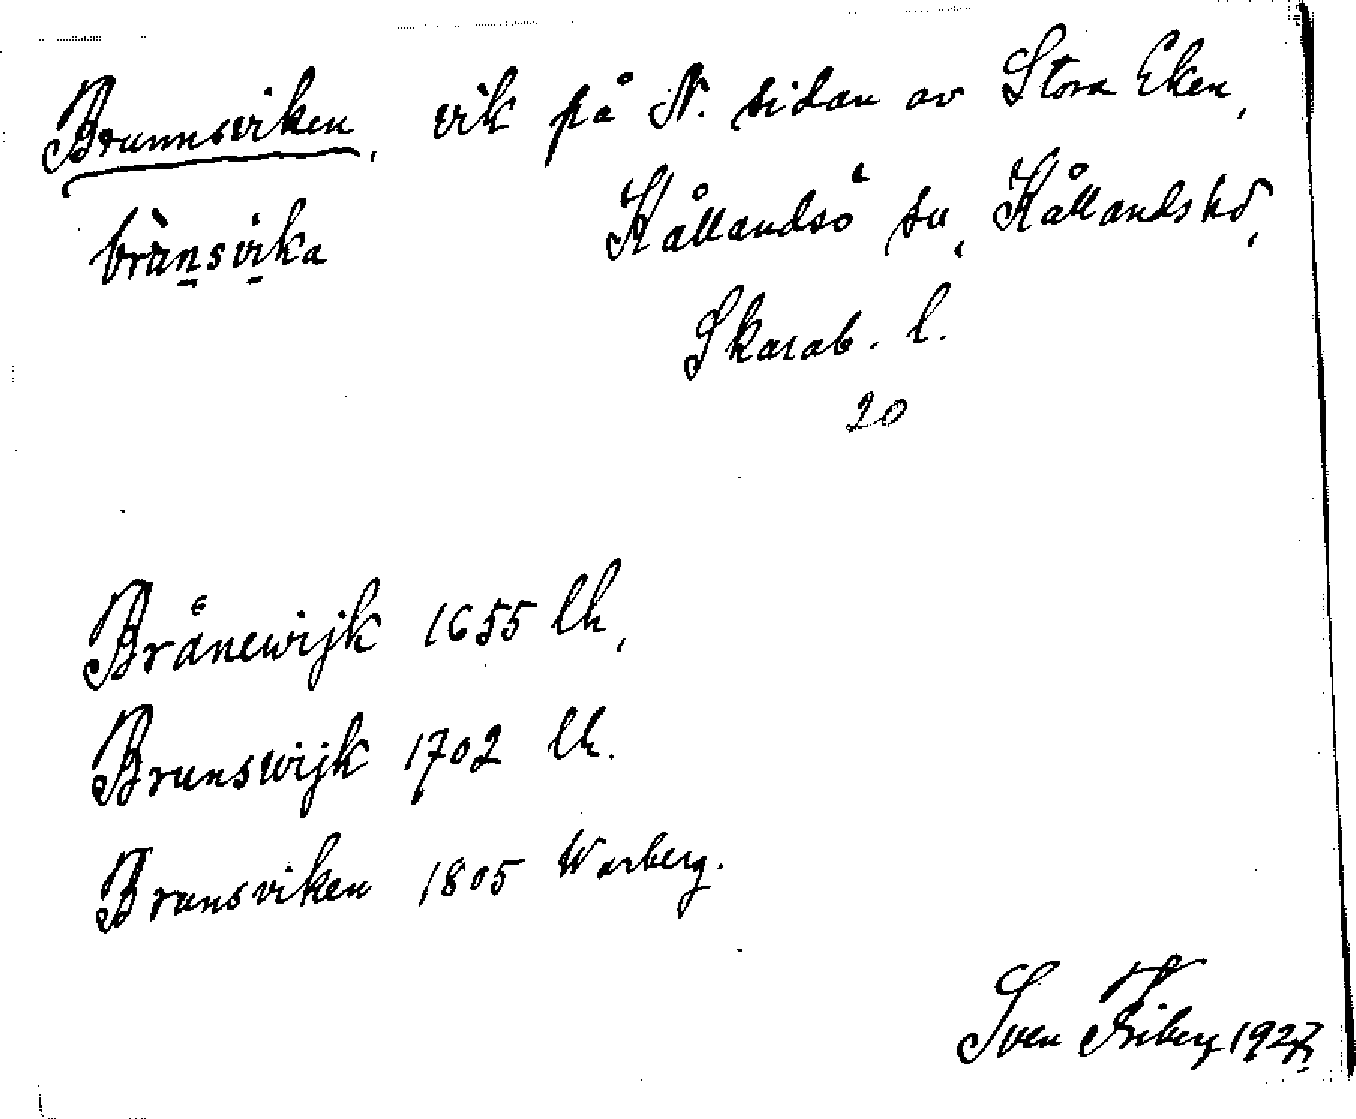 Brunnsviken, vik på N. sidan av Stora Eken,
brùnsvika Kållandsö sn, Kållands hd,
Skarab. l.
20
Brånewijk 1655 lk,
Brunswijk 1702 lk.
Brunsviken 1805 Warberg.
Sven Friberg 1927